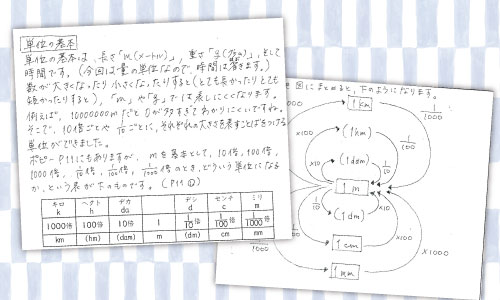 単位の基本
単位の基本は、長さ「m(メートル)」、重さ「g(グラム)」、そして
時間です。(今回は量の単位なので、時間は省きます。)
数が大きくなったり小さくなったりすると(とても長かったりとても
短かったりすると)、「m」や「g」では表しにくくなります。
例えば、10000000mだと0が多すぎてわかりにくいですね。
そこで、10倍ごとや1/10ごとに、それぞれの大きさを表すことばをつける
単位ができました。
ポピーP11にもありますが、mを基本として、10倍、100倍、
1000倍、1/10倍、1/100倍、1/1000倍のとき、どういう単位になる
か、という表が下のものです。(P11①)
キロ ヘクト デカ デシ センチ ミリ
k h da d c m
1000倍 100倍 10倍 1 1/10倍 1/100倍 1/1000倍
km (hm) (dam) m (dm) cm mm
図にまとめると、下のようになります。
1km
×100
1/100
(1hm)
×10
1/10
(1dam)
1m
1/10
×10
(1dm)
1/100
×100
1cm
1/1000
×1000
1mm